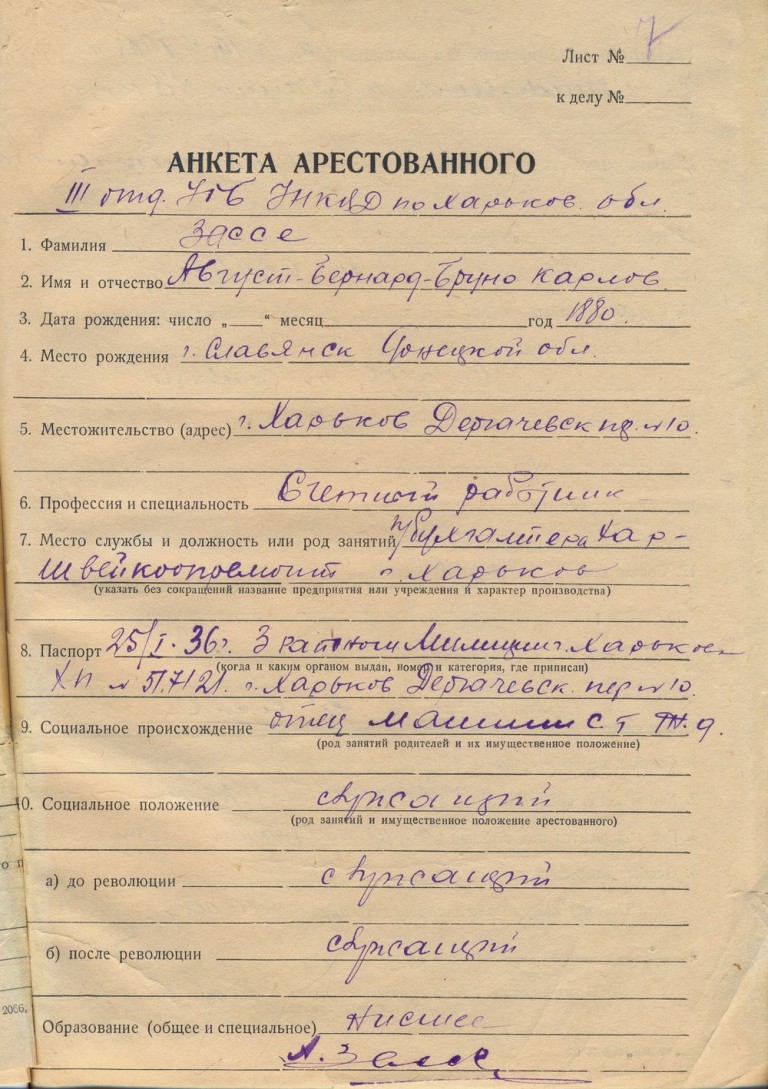 Лист № 7
к делу №
АНКЕТА АРЕСТОВАННОГО
III отд. УГБ УНКВД по Харьков. обл.
1. Фамилия Зассе
2. Имя и отчество Август-Бернард-Бруно Карлов.
3. Дата рождения: число „ “ месяц год 1880.
4. Место рождения г. Славянск Донецкой обл.
5. Местожительство (адрес) г. Харьков Дергачевск пер. №10.
6. Профессия и специальность Счетный работник
7. Место службы и должность или род занятий бухгалтера Хар-
Швейкоопремонт г. Харьков
(указать без сокращений название предприятия или учреждения и характер производства)
8. Паспорт 25/I-36г. 3 Милиции г. Харьков
(когда и каким органом выдан, номер и категория, где приписан)
№ 517121. г. Харьков Дергачевск. пер №10.
9. Социальное происхождение отец машинист ж.д.
(род занятий родителей и их имущественное положение)
10. Социальное положение служащий
(род занятий и имущественное положение арестованного)
а) до революции служащий
б) после революции служащий
Образование (общее и специальное) низшее
А. Зассе
2066.